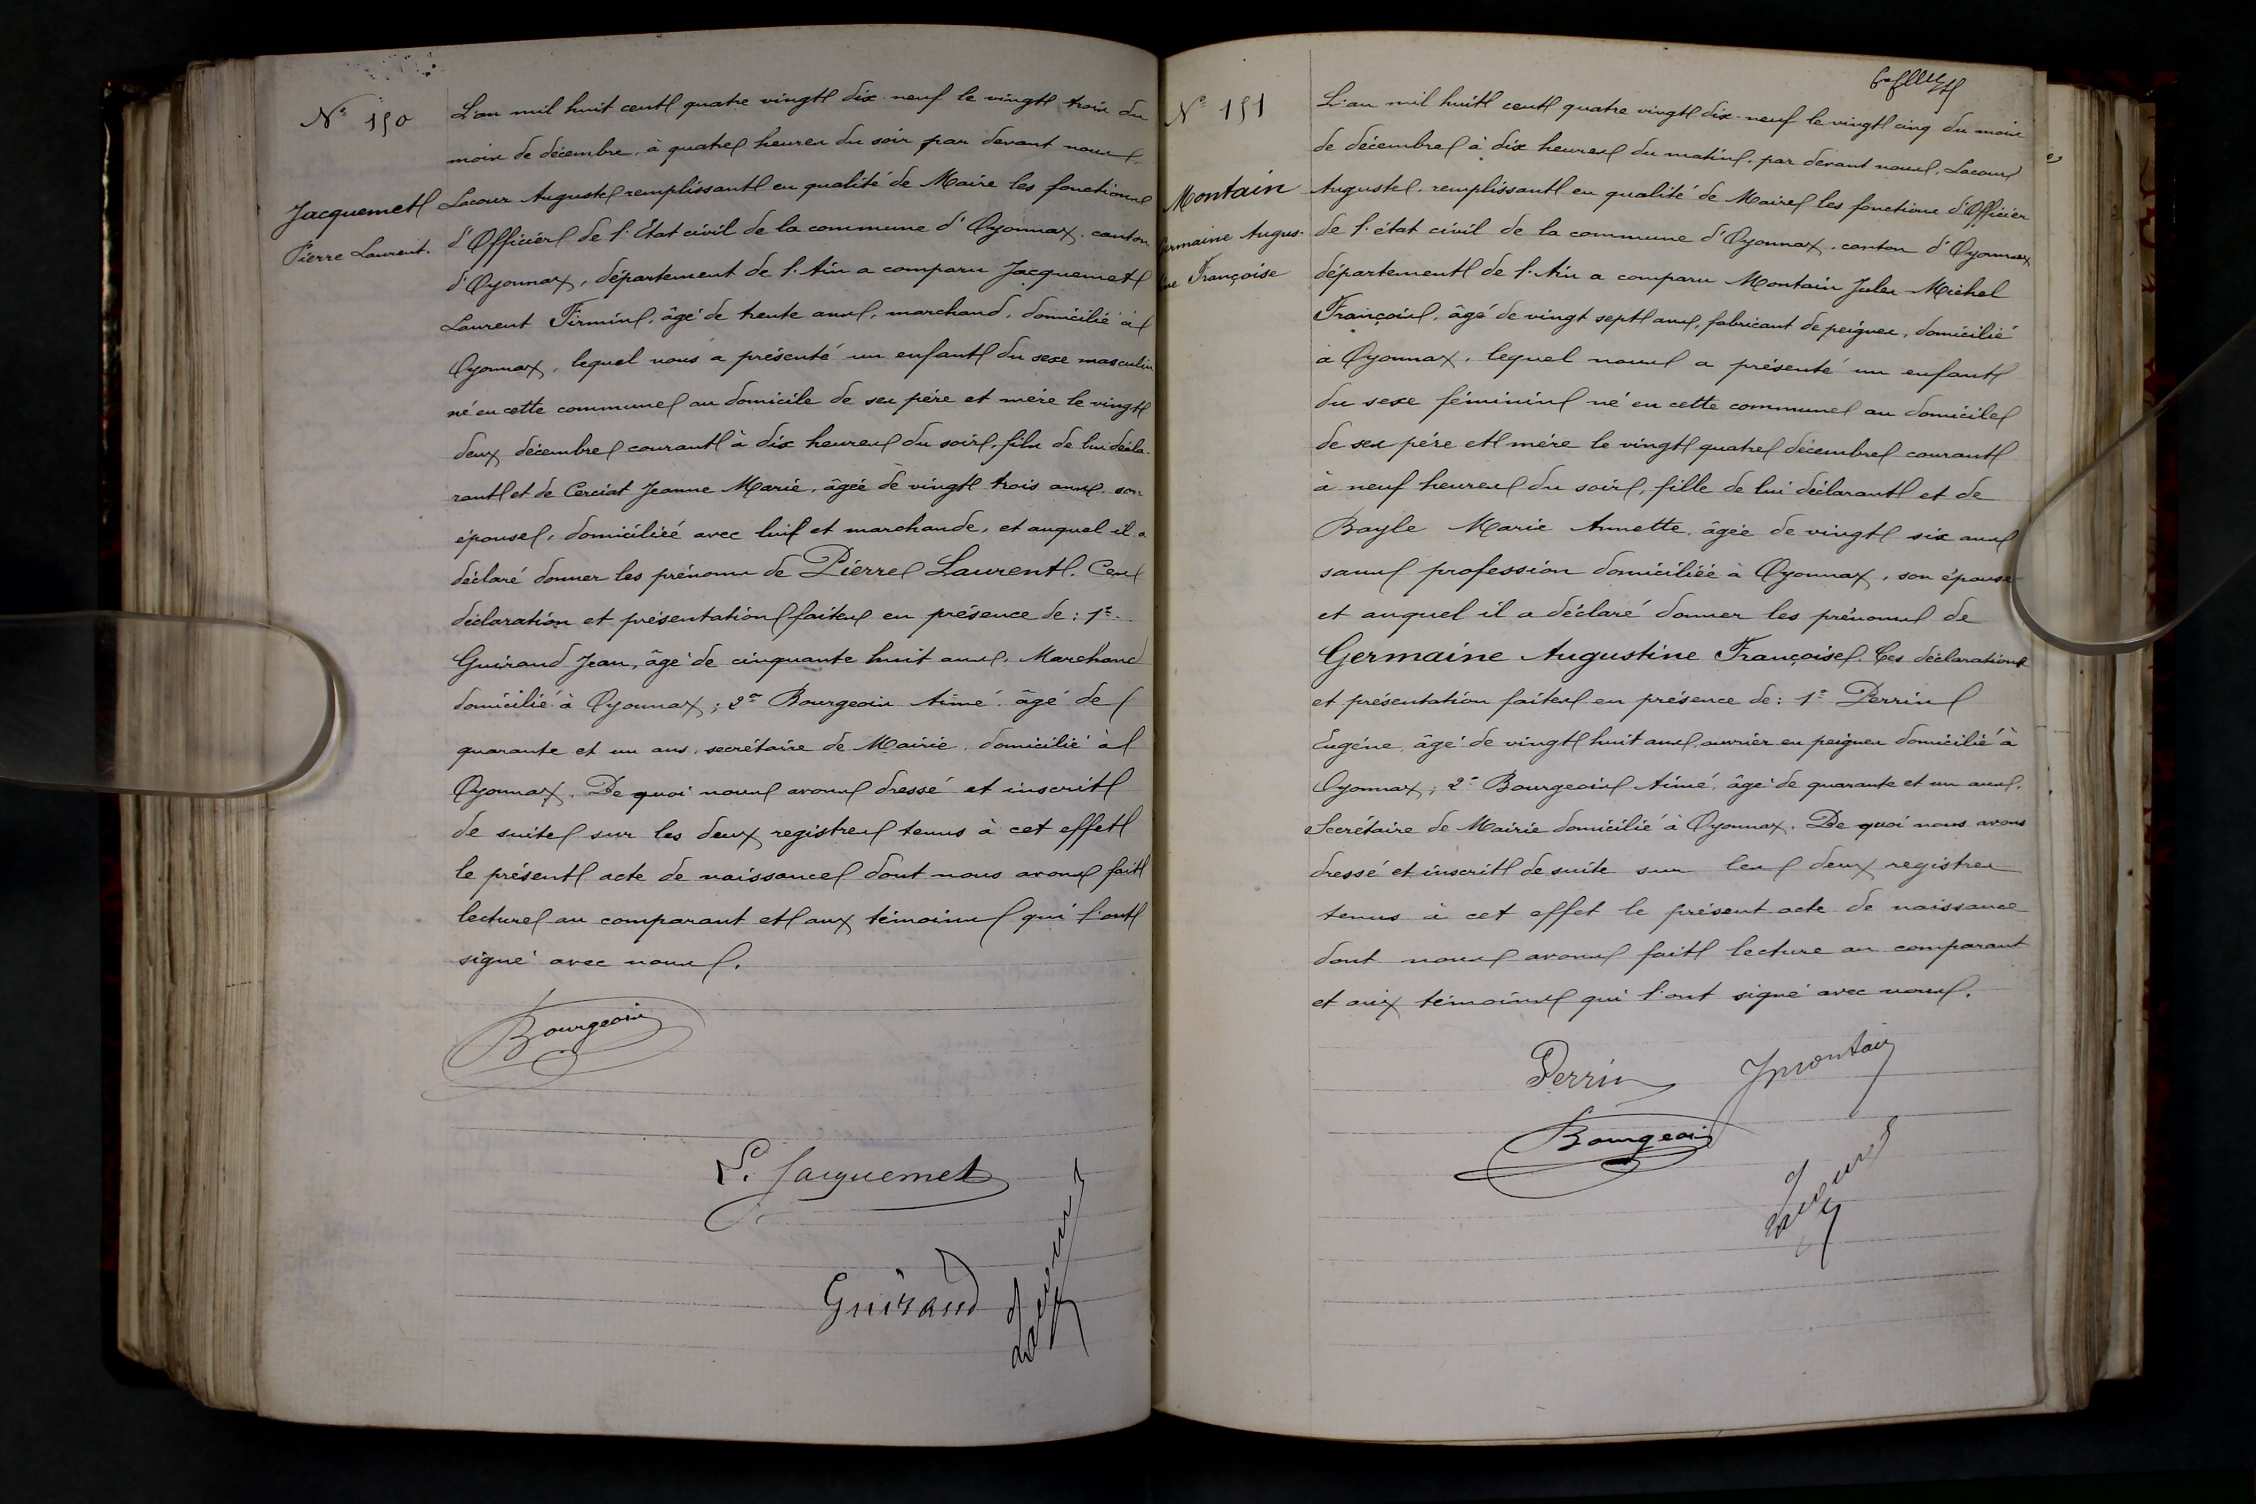 N° 150
Jacquemet
Pierre Laurent.
L'an mil huit cent quatre vingt dix-neuf le vingt trois du
mois de décembre, à quatre heures du soir par devant nous
Lacour Auguste remplissant en qualité de Maire les fonctions
d'Officier de l'État civil de la commune d'Oyonnax, canton
d'Oyonnax, département de l'Ain a comparu Jacquemet
Laurent Firmin, âgé de trente ans, marchand, domicilié à
Oyonnax, lequel nous a présenté un enfant du sexe masculin
né en cette commune au domicile de ses père et mère le vingt
deux décembre courant à dix heures du soir, fils de lui décla-
rant et de Cerciat Jeanne Marie, âgée de vingt trois ans, son
épouse, domiciliée avec lui et marchande, et auquel il a
déclaré donner les prénoms de Pierre Laurent. Ces
déclaration et présentation faites en présence de : 1°
Guiraud Jean, âgé de cinquante huit ans, Marchand
domicilié à Oyonnax ; 2° Bourgeois Aimé, âgé de
quarante et un ans, secrétaire de Mairie, domicilié à
Oyonnax. De quoi nous avons dressé et inscrit
de suite sur les deux registres tenus à cet effet
le présent acte de naissance dont nous avons fait
lecture au comparant et aux témoins qui l'ont
signé avec nous.
Bourgeois
L. Jacquemet
Guiraud
Lacour
N° 151
Montain
Germaine Augus-
tine Françoise
L'an mil huit cent quatre vingt dix-neuf le vingt cinq du mois
de décembre à dix heures du matin, par devant nous, Lacour
Auguste, remplissant en qualité de Maire les fonctions d'Officier
de l'état civil de la commune d'Oyonnax, canton d'Oyonnax
département de l'Ain a comparu Montain Jules Michel
François, âgé de vingt sept ans, fabricant de peignes, domicilié
à Oyonnax, lequel nous a présenté un enfant
du sexe féminin né en cette commune au domicile
de ses père et mère le vingt quatre décembre courant
à neuf heures du soir, fille de lui déclarant et de
Bayle Marie Annette, âgée de vingt six ans
sans profession domiciliée à Oyonnax, son épouse
et auquel il a déclaré donner les prénoms de
Germaine Augustine Françoise. Ces déclaration
et présentation faites en présence de : 1° Perrin
Eugène, âgé de vingt huit ans, ouvrier en peignes domicilié à
Oyonnax ; 2° Bourgeois Aimé, âgé de quarante et un ans,
Secrétaire de Mairie domicilié à Oyonnax. De quoi nous avons
dressé et inscrit de suite sur les deux registres
tenus à cet effet le présent acte de naissance
dont nous avons fait lecture au comparant
et aux témoins qui l'ont signé avec nous.
Perrin JMontain
Bourgeois
Lacour